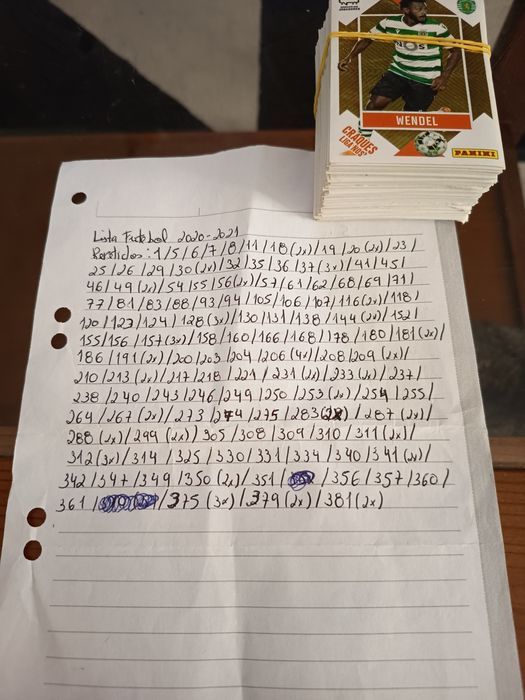 NOS
WENDEL
CRAQUES
LIGA NOS
PANINI
Lista Futebol 2020-2021
Repetidos: 1/5/6/7/8/11/18(2x)/19/20(2x)/23/
25/26/29/30(2x)/32/35/36/37(3x)/41/45/
46/49(2x)/54/55/56(2x)/57/61/62/68/69/71
77/81/83/88/93/94/105/106/107/116(2x)/118/
120/123/124/128(3x)/130/131/138/144(2x)/152/
155/156/157(3x)/158/160/166/168/178/180/181(2x)/
186/191(2x)/200/203/204/206(4x)/208/209(2x)/
210/213(2x)/217/218/221/231(2x)/233(2x)/237/
238/240/243/246/249/250/253(2x)/254/255/
264/267(2x)/273/274/275/283/287(2x)/
288(2x)/299(2x)/305/308/309/310/311(2x)/
312(3x)/314/325/330/331/334/340/341(2x)/
342/347/349/350(2x)/351/356/357/360/
361/375(3x)/379(2x)/381(2x)